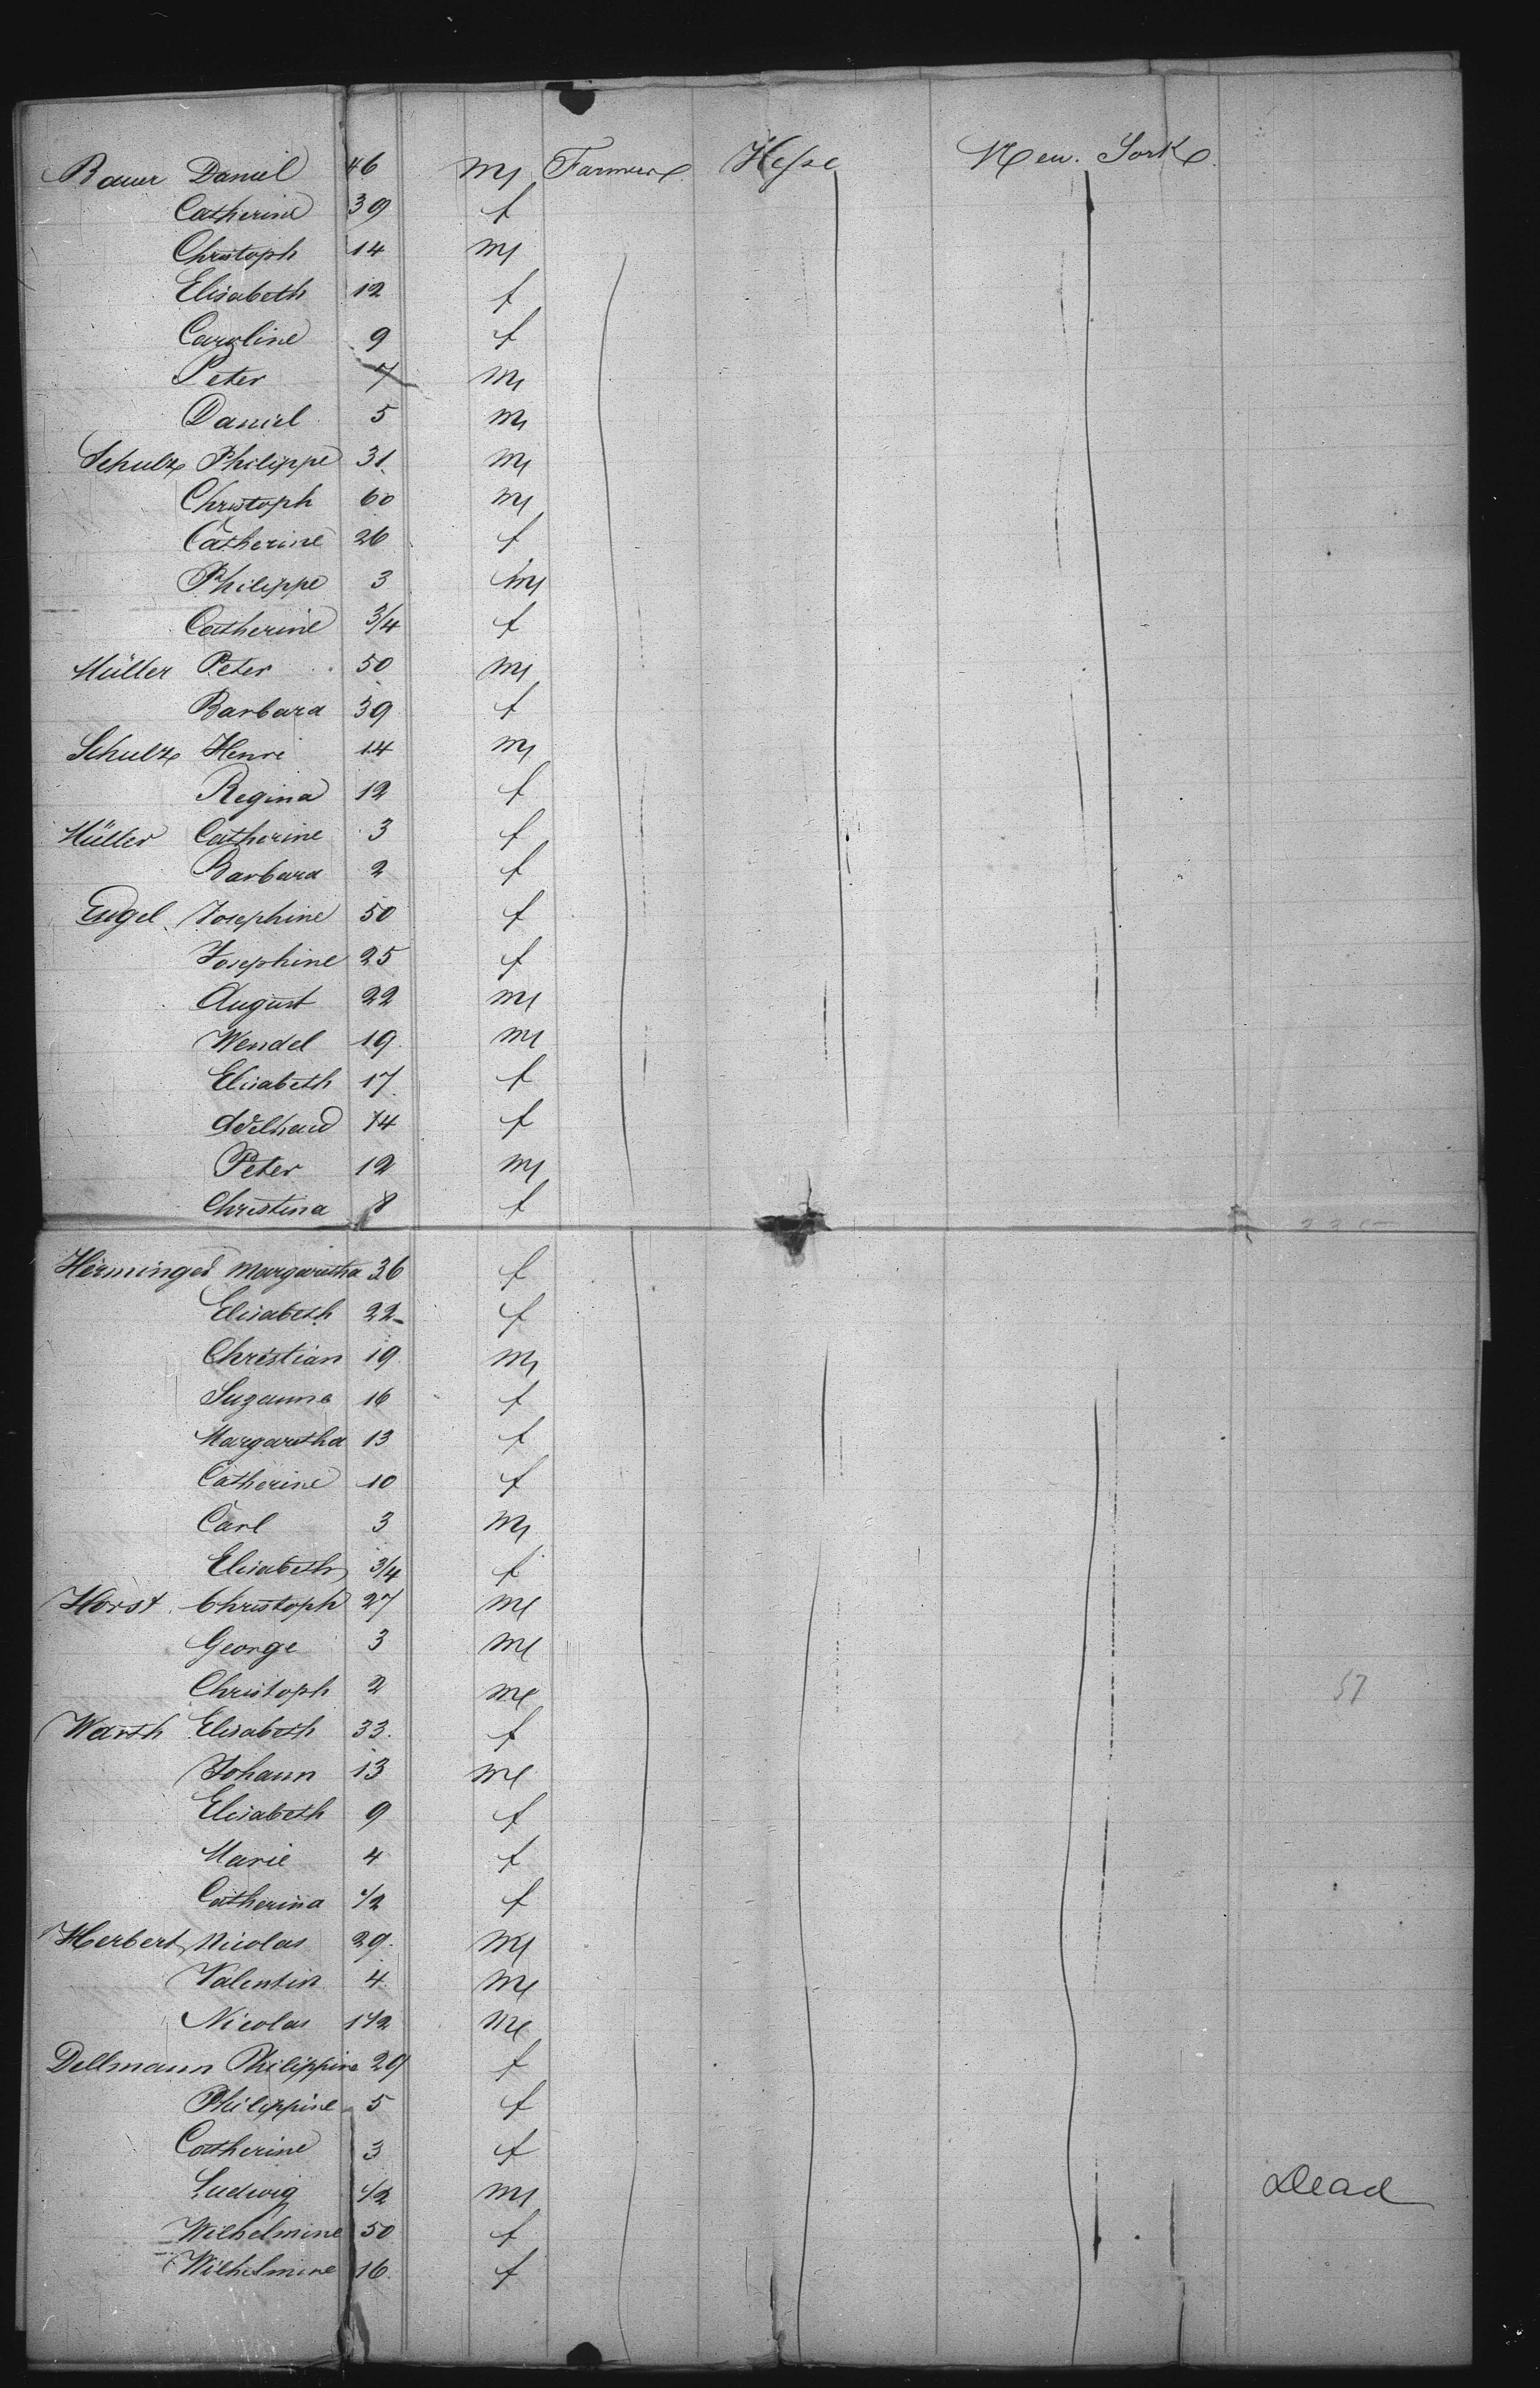 Bauer Daniel 46 m Farmer Hesse New. York
Catherine 39 f
Christoph 14 m
Elisabeth 12 f
Caroline 9 f
Peter 7 m
Daniel 5 m
Schulz Philippe 31 m
Christoph 60 m
Catherine 26 f
Philippe 3 m
Catherine 3/4 f
Müller Peter 50 m
Barbara 39 f
Schulz Henri 14 m
Regina 12 f
Müller Catherine 3 f
Barbara 2 f
Engel Josephine 50 f
Josephine 25 f
August 22 m
Wendel 19 m
Elisabeth 17 f
Adelhaid 14 f
Peter 12 m
Christina 8 f
Herminger Margaretha 36 f
Elisabeth 22 f
Christian 19 m
Suzanna 16 f
Margaretha 13 f
Catherine 10 f
Carl 3 m
Elisabeth 3/4 f
Horst Christoph 27 m
George 3 m
Christoph 2 m 57
Warth Elisabeth 33 f
Johann 13 m
Elisabeth 9 f
Marie 4 f
Catherina 1/2 f
Herbert Nicolas 29 m
Valentin 4 m
Nicolas 1 1/2 m
Dellmann Philippine 29 f
Philippine 5 f
Catherine 3 f
Ludwig 1/2 m Dead
Wilhelmine 50 f
Wilhelmine 16 f